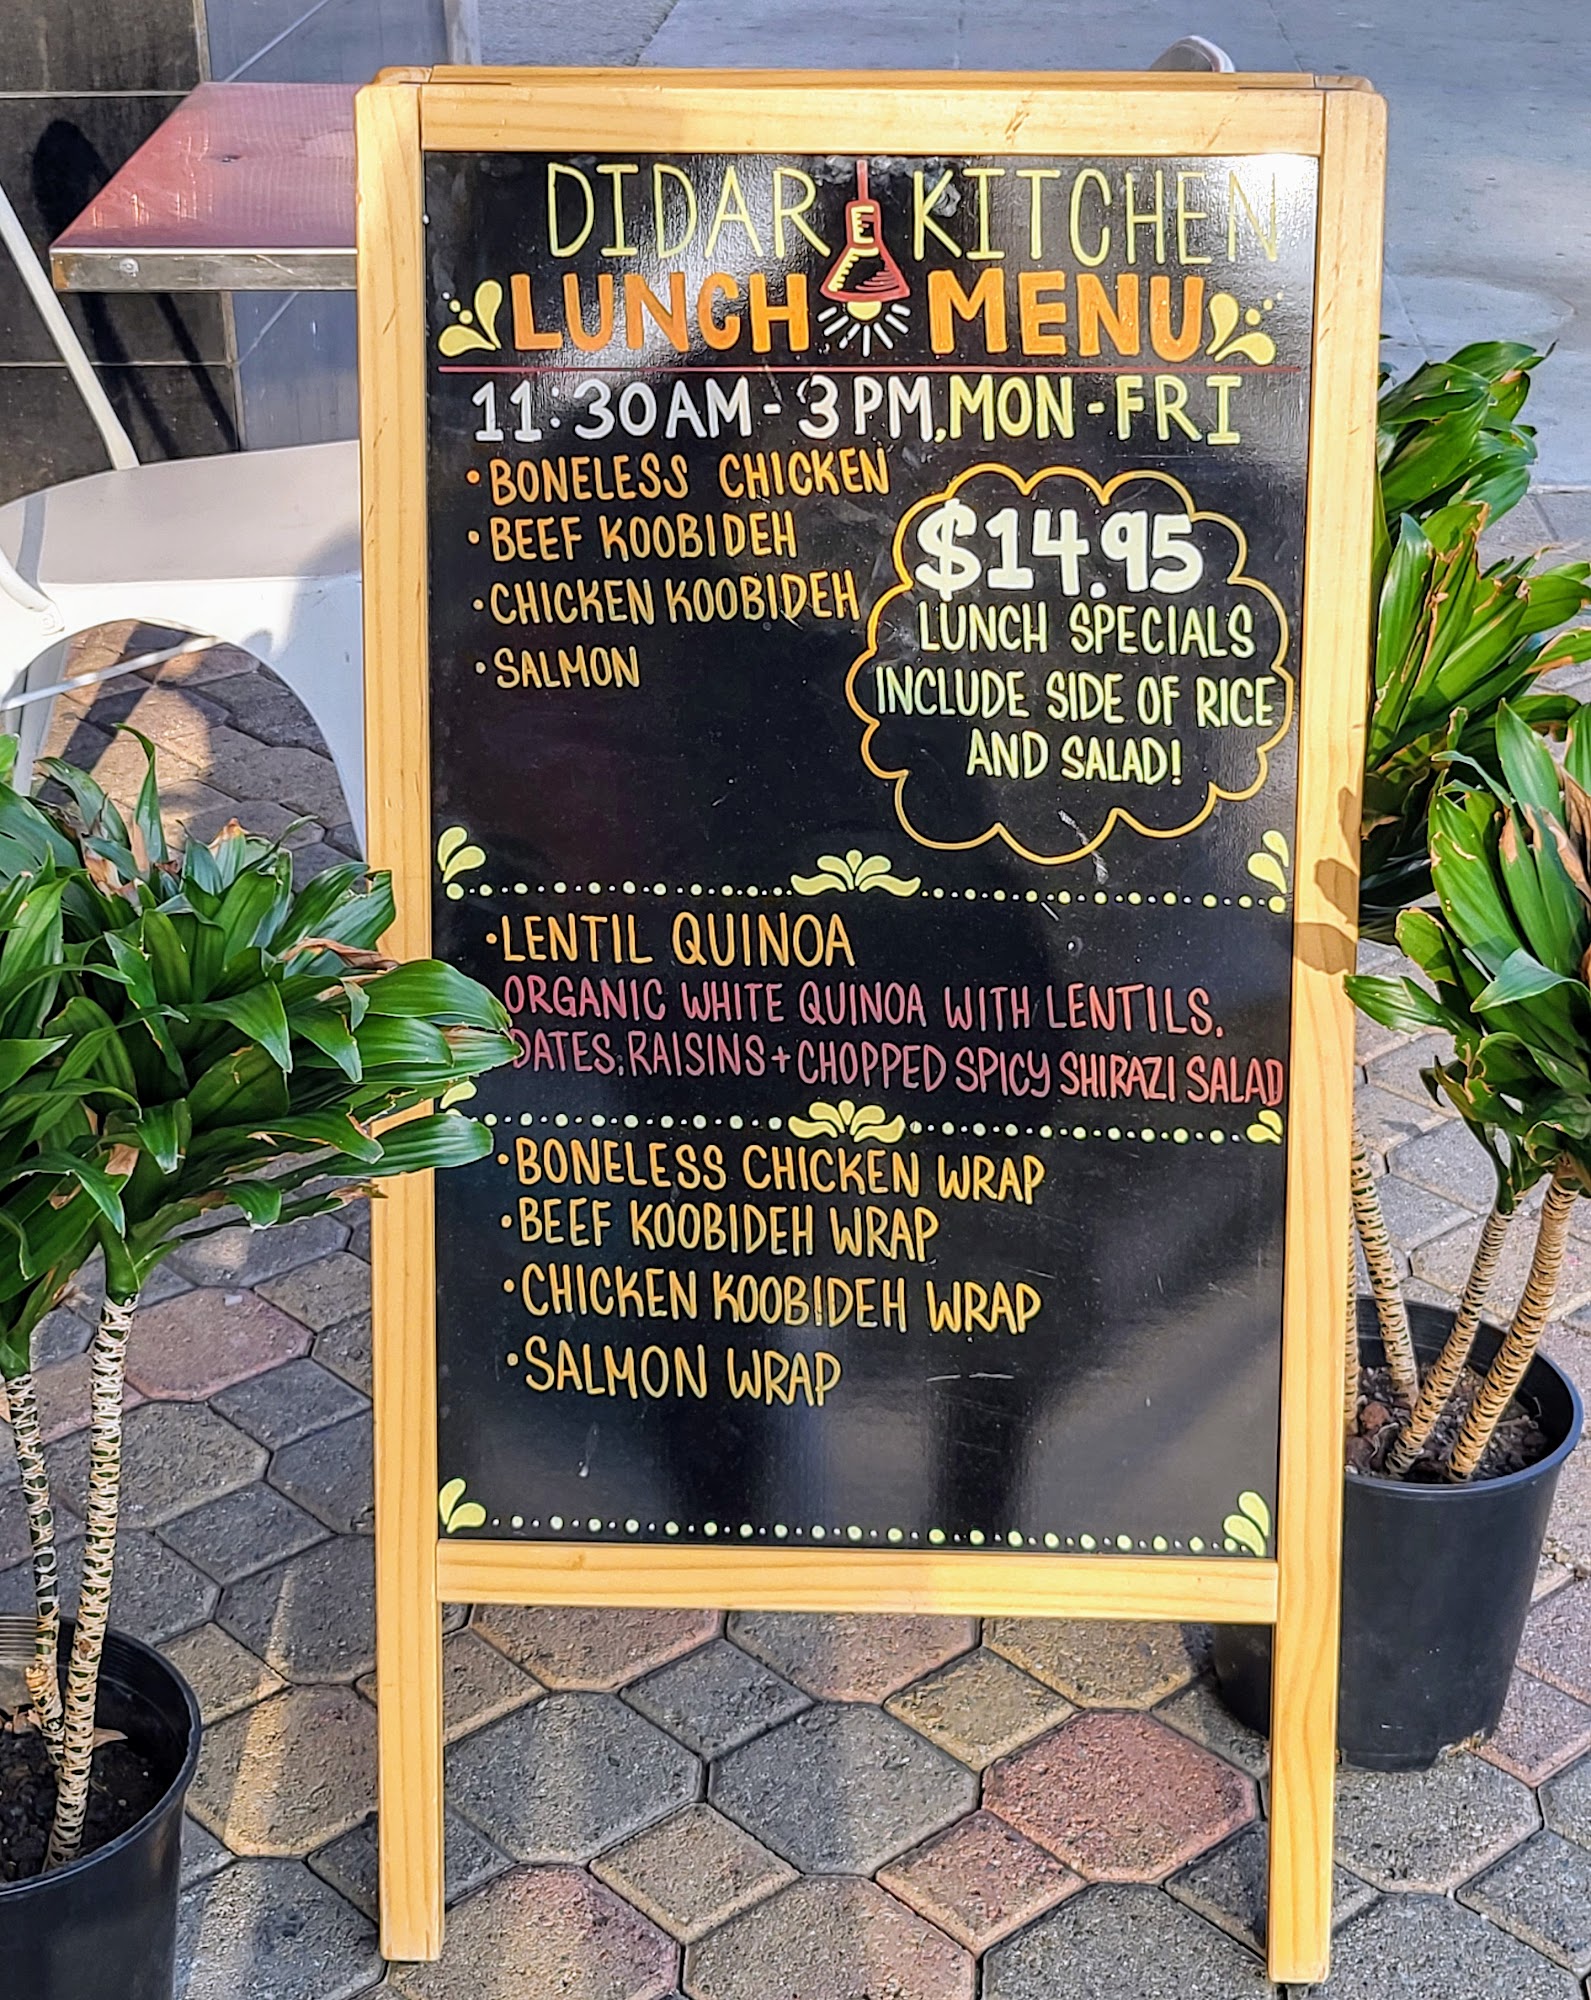 DIDAR KITCHEN
LUNCH MENU
11:30AM - 3PM, MON - FRI
• BONELESS CHICKEN
• BEEF KOOBIDEH
• CHICKEN KOOBIDEH
• SALMON
$14.95
LUNCH SPECIALS
INCLUDE SIDE OF RICE
AND SALAD!
• LENTIL QUINOA
ORGANIC WHITE QUINOA WITH LENTILS,
DATES, RAISINS + CHOPPED SPICY SHIRAZI SALAD
• BONELESS CHICKEN WRAP
• BEEF KOOBIDEH WRAP
• CHICKEN KOOBIDEH WRAP
• SALMON WRAP